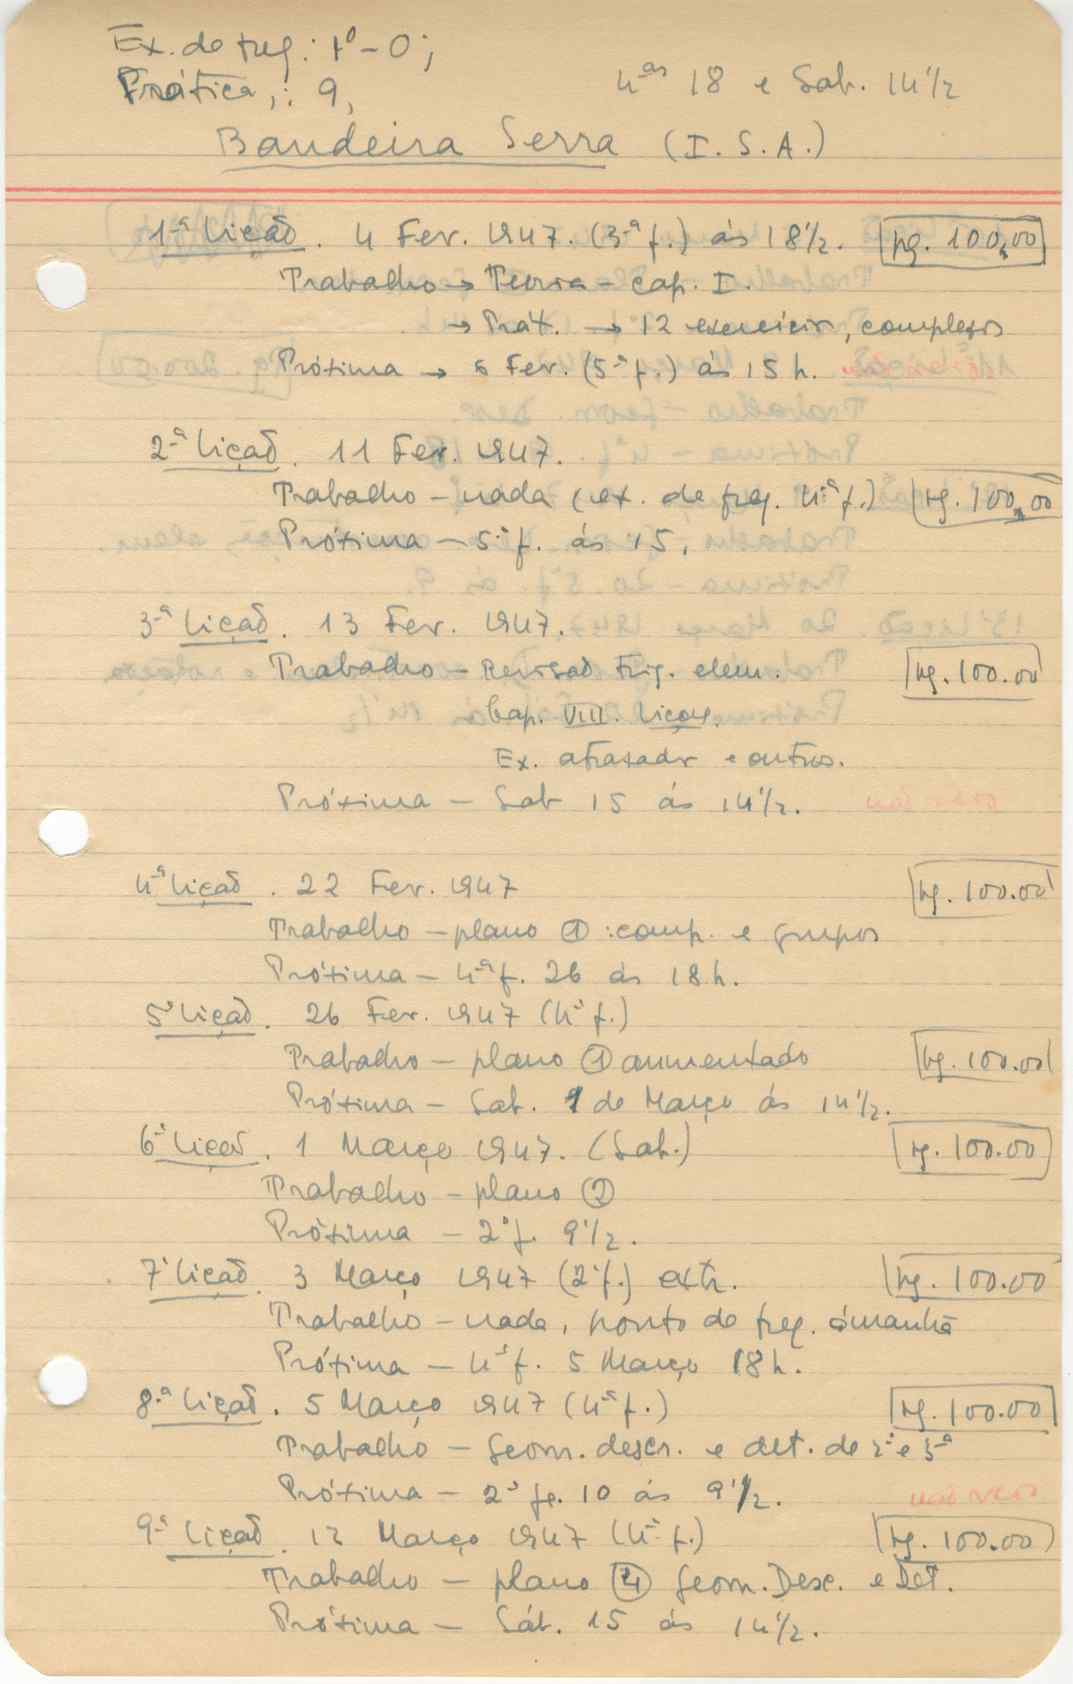 Ex. de freq.: 1º - 0;
Prática,: 9,
4ªs 18 e Sab. 14 1/2
Bandeira Serra (I. S. A.)
1ª Lição. 4 Fev. 1947. (3ª f.) ás 18 1/2. pg. 100,00
Trabalho → Teoria - cap. I.
→ Prát. → 12 exercicios, complexos
Próxima → 6 Fev. (5ª f.) ás 15 h.
2ª Lição. 11 Fev. 1947.
Trabalho - nada (ex. de freq. 4ª f.) pg. 100,00
Próxima - 5ª f. ás 15,
3ª Lição. 13 Fev. 1947.
Trabalho - Revisão Trig. elem. pg. 100.00
Cap. VIII. Lições.
Ex. atrasados e outros.
Próxima - Sab 15 ás 14 1/2. não veio
4ª Lição. 22 Fev. 1947 pg. 100.00
Trabalho - plano ① : comp. e grupos
Próxima - 4ª f. 26 ás 18 h.
5ª Lição. 26 Fev. 1947 (4ª f.)
Trabalho - plano ① aumentado pg. 100.00
Próxima - Sab. 1 de Março ás 14 1/2.
6ª Lição. 1 Março 1947. (Sab.) pg. 100.00
Trabalho - plano ②
Próxima - 2ª f. 9 1/2.
7ª Lição 3 Março 1947 (2ª f.) extr. pg. 100.00
Trabalho - nada, ponto de freq. ámanhã
Próxima - 4ª f. 5 Março 18 h.
8ª Lição. 5 Março 1947 (4ª f.) pg. 100.00
Trabalho - Geom. descr. e det. de 2ª e 3ª
Próxima - 2ª fe. 10 ás 9 1/2. não veio
9ª Lição. 12 Março 1947 (4ª f.) pg. 100.00
Trabalho - plano ④ Geom. Desc. e Det.
Próxima - Sáb. 15 ás 14 1/2.